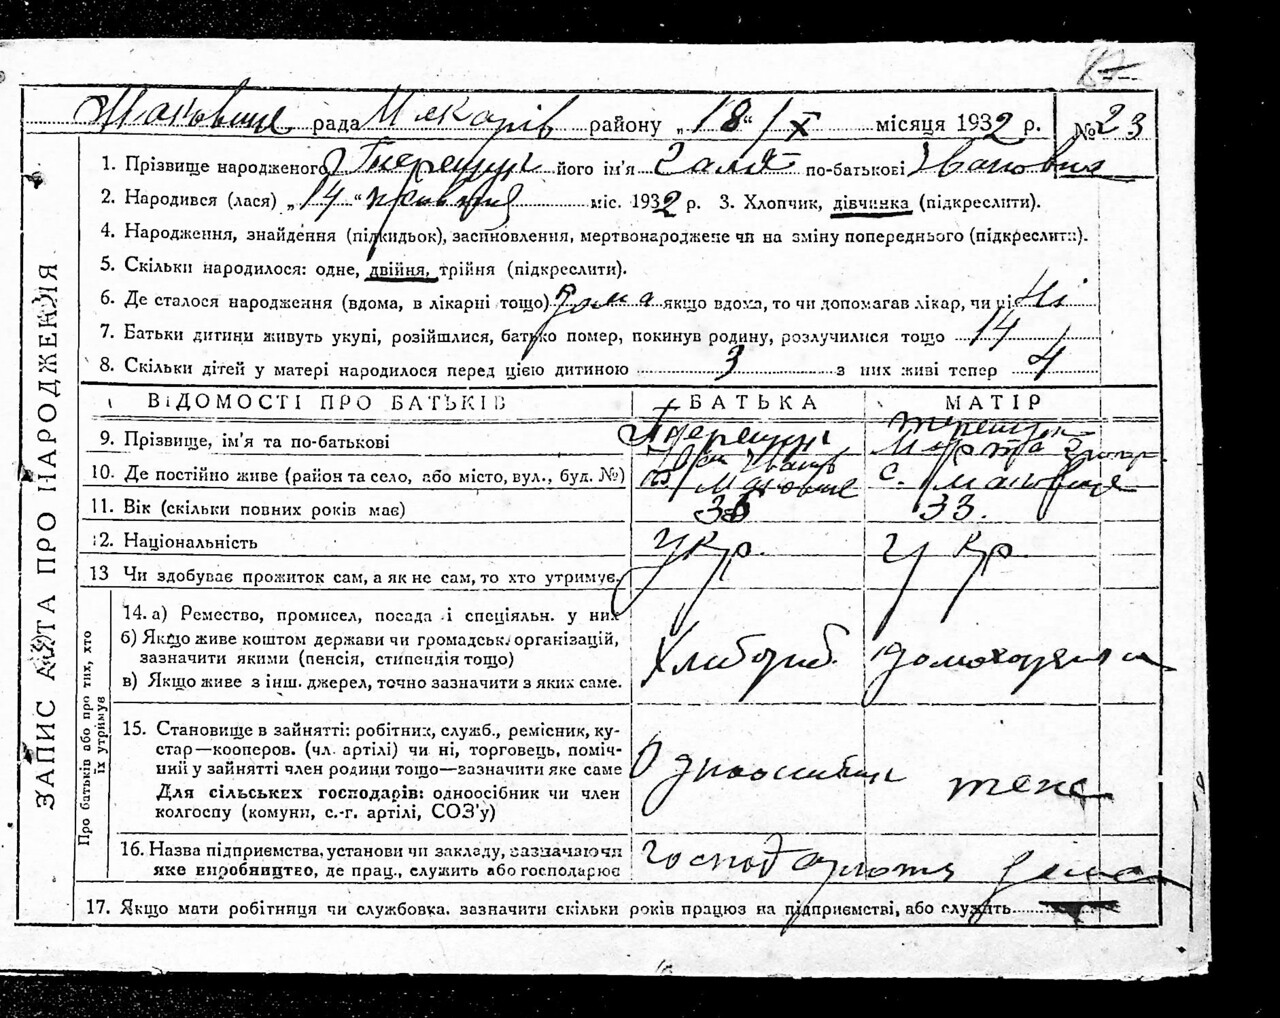 Маковище рада Макарів району „18“/X місяця 1932 р. № 23
1. Прізвище народженого Терещук його ім'я Галя по-батькові Івановна
2. Народився (лася) „14“ жовтня міс. 1932 р. 3. Хлопчик, дівчинка (підкреслити).
4. Народження, знайдення (підкидьок), засиновлення, мертвонароджене чи на зміну попереднього (підкреслити).
5. Скільки народилося: одне, двійня, трійня (підкреслити).
6. Де сталося народження (вдома, в лікарні тощо) дома якщо вдома, то чи допомагав лікар, чи ні Ні
7. Батьки дитини живуть укупі, розійшлися, батько помер, покинув родину, розлучилися тощо 14
8. Скільки дітей у матері народилося перед цією дитиною 3 з них живі тепер 4
ВІДОМОСТІ ПРО БАТЬКІВ БАТЬКА МАТІР
9. Прізвище, ім'я та по-батькові Терещук Іван Терещук Марта
10. Де постійно живе (район та село, або місто, вул., буд. №) Маковище с. Маковище
11. Вік (скільки повних років має) 33.
12. Національність Укр. Укр.
13 Чи здобуває прожиток сам, а як не сам, то хто утримує.
Про батьків або про тих, хто їх утримує
14. а) Ремество, промисел, посада і спеціяльн. у них
б) Якщо живе коштом держави чи громадськ. організацій,
зазначити якими (пенсія, стипендія тощо)
Хлібороб. домохозяйка
в) Якщо живе з інш. джерел, точно зазначити з яких саме.
15. Становище в зайнятті: робітник, служб., ремісник, ку-
стар—кооперов. (чл. артілі) чи ні, торговець, поміч-
ний у зайнятті член родини тощо—зазначити яке саме
Одноосибник теж
Для сільських господарів: одноосібник чи член
колгоспу (комуни, с.-г. артілі, СОЗ'у)
16. Назва підприємства, установи чи закладу, зазначаючи
яке виробництво, де прац., служить або господарює
дома
17. Якщо мати робітниця чи службовка. зазначити скільки років працює на підприємстві, або служить
ЗАПИС АКТА ПРО НАРОДЖЕННЯ